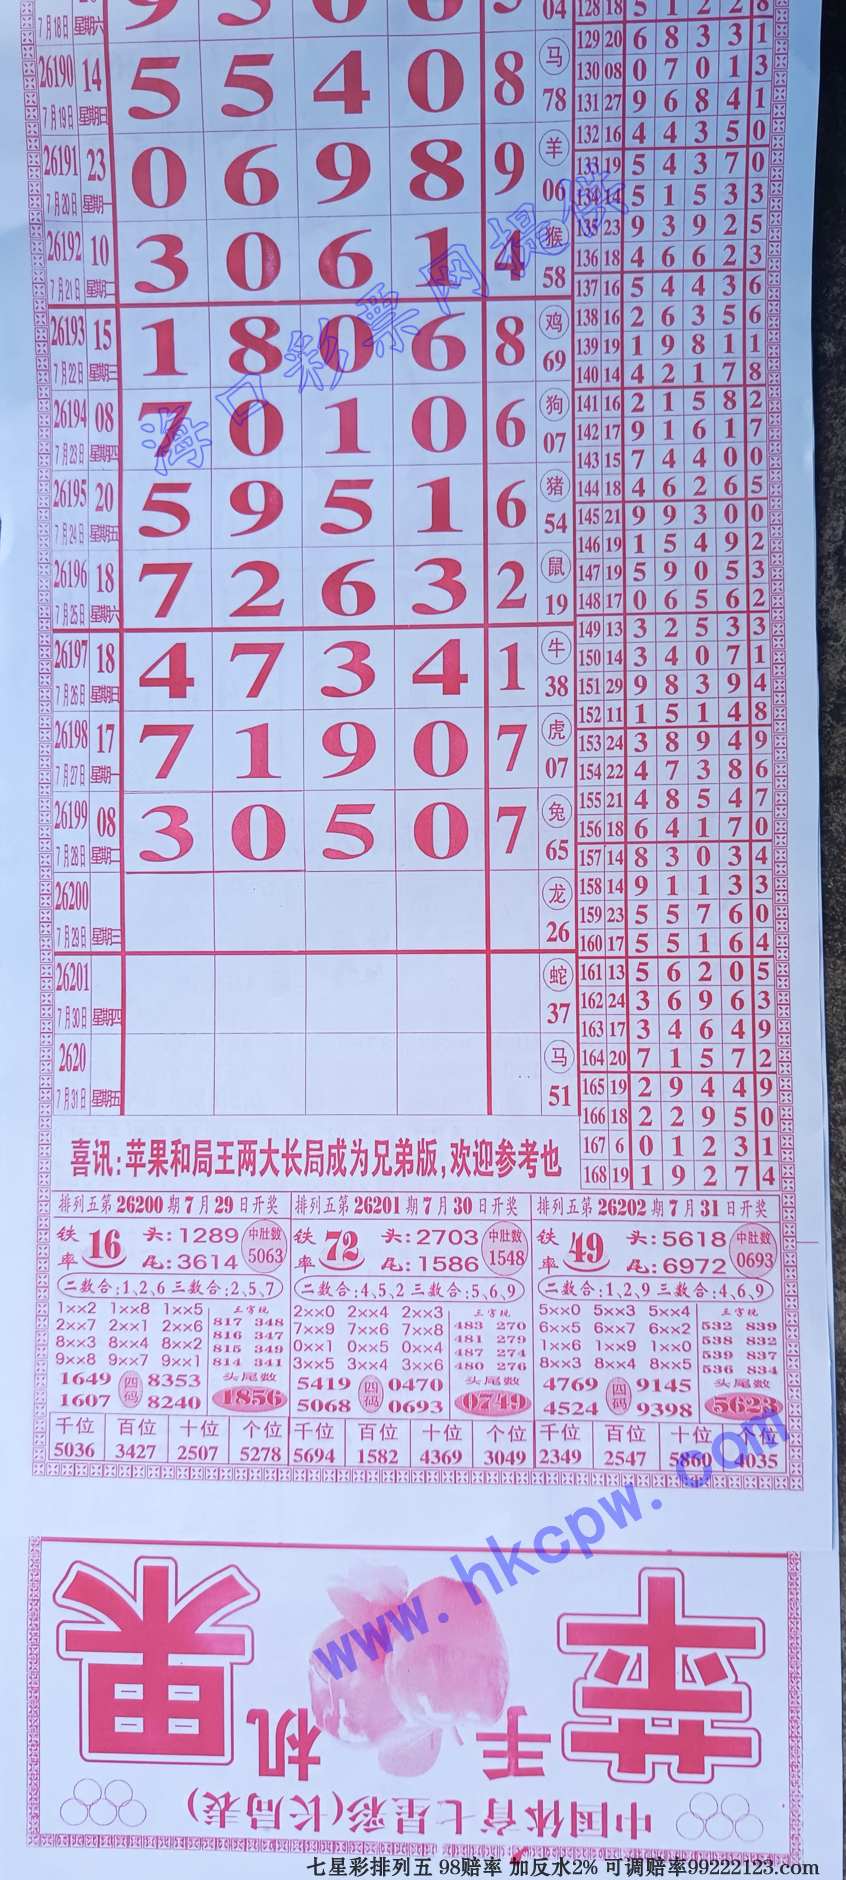 7月18日 星期六 04
26190 14 5 5 4 0 8 马 78
7月19日 星期日
26191 23 0 6 9 8 9 羊 06
7月20日 星期一
26192 10 3 0 6 1 4 猴 58
7月21日 星期二
26193 15 1 8 0 6 8 鸡 69
7月22日 星期三
26194 08 7 0 1 0 6 狗 07
7月23日 星期四
26195 20 5 9 5 1 6 猪 54
7月24日 星期五
26196 18 7 2 6 3 2 鼠 19
7月25日 星期六
26197 18 4 7 3 4 1 牛 38
7月26日 星期日
26198 17 7 1 9 0 7 虎 07
7月27日 星期一
26199 08 3 0 5 0 7 兔 65
7月28日 星期二
26200 龙 26
7月29日 星期三
26201 蛇 37
7月30日 星期四
2620 马 51
7月31日 星期五
128 18 5 1 2 2 8
129 20 6 8 3 3 1
130 08 0 7 0 1 3
131 27 9 6 8 4 1
132 16 4 4 3 5 0
133 19 5 4 3 7 0
134 14 5 1 5 3 3
135 23 9 3 9 2 5
136 18 4 6 6 2 3
137 16 5 4 4 3 6
138 16 2 6 3 5 6
139 19 1 9 8 1 1
140 14 4 2 1 7 8
141 16 2 1 5 8 2
142 17 9 1 6 1 7
143 15 7 4 4 0 0
144 18 4 6 2 6 5
145 21 9 9 3 0 0
146 19 1 5 4 9 2
147 19 5 9 0 5 3
148 17 0 6 5 6 2
149 13 3 2 5 3 3
150 14 3 4 0 7 1
151 29 9 8 3 9 4
152 11 1 5 1 4 8
153 24 3 8 9 4 9
154 22 4 7 3 8 6
155 21 4 8 5 4 7
156 18 6 4 1 7 0
157 14 8 3 0 3 4
158 14 9 1 1 3 3
159 23 5 5 7 6 0
160 17 5 5 1 6 4
161 13 5 6 2 0 5
162 24 3 6 9 6 3
163 17 3 4 6 4 9
164 20 7 1 5 7 2
165 19 2 9 4 4 9
166 18 2 2 9 5 0
167 6 0 1 2 3 1
168 19 1 9 2 7 4
海口彩票网提供
喜讯:苹果和局王两大长局成为兄弟版,欢迎参考也
排列五第26200期7月29日开奖
铁率 16 头:1289 尾:3614 中肚数 5063
二数合:1,2,6 三数合:2,5,7
1××2 1××8 1××5 三字现
2××7 2××1 2××6 817 348
8××3 8××4 8××2 816 347
9××8 9××7 9××1 815 349
814 341
1649 四码 8353 头尾数
1607 8240 1856
千位 百位 十位 个位
5036 3427 2507 5278
排列五第26201期7月30日开奖
铁率 72 头:2703 尾:1586 中肚数 1548
二数合:4,5,2 三数合:5,6,9
2××0 2××4 2××3 三字现
7××9 7××6 7××8 483 270
0××1 0××5 0××4 481 279
3××5 3××4 3××6 487 274
480 276
5419 四码 0470 头尾数
5068 0693 0749
千位 百位 十位 个位
5694 1582 4369 3049
排列五第26202期7月31日开奖
铁率 49 头:5618 尾:6972 中肚数 0693
二数合:1,2,9 三数合:4,6,9
5××0 5××3 5××4 三字现
6××5 6××7 6××2 532 839
1××6 1××9 1××0 538 832
8××3 8××4 8××5 539 837
536 834
4769 四码 9145 头尾数
4524 9398 5623
千位 百位 十位 个位
2349 2547 5860 4035
www.hkcpw.com
苹果
手机
中国体育七星彩(长局表)
七星彩排列五 98赔率 加反水2% 可调赔率99222123.com